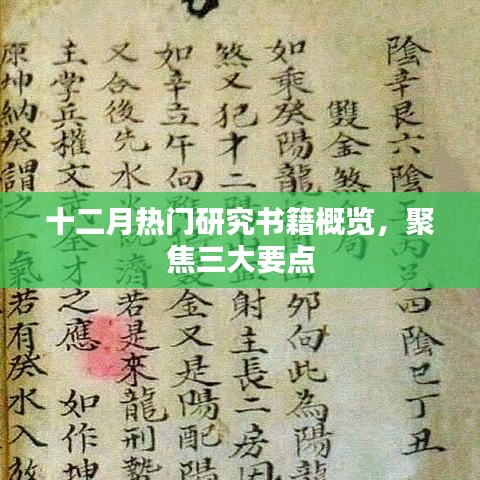 十二月热门研究书籍概览，聚
焦三大要点
陰辛艮六陰兑四陰巳丁丑
雙金煞
如乘癸陽龍卯向此為陽龍
煞又犯才二射主長二房因
如辛立午向金又是陽配陽
又合後先水濟若是來龍刑
主学兵權文才之應如作坤
原坤納癸謂之一氣若有癸水入放